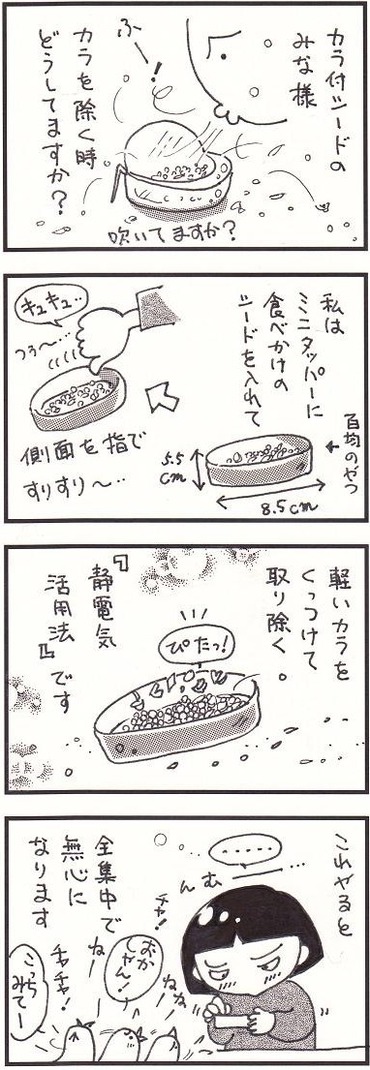 カラ付シードの
みな様
カラを除く時
どうしてますか?
ふー!
吹いてますか?
私は
ミニタッパーに
食べかけの
シードを入れて
百均のやつ
5.5
cm
8.5cm
キュキュ‥
つるつ〜
側面を指で
すりすり〜‥
軽いカラを
くっつけて
取り除く。
『静電気
活用法』です
ぴたっ!
これやると
‥‥‥
むん
全集中で
無心に
なります
チャ!
おか
しゃん!
ねー
ねー
ねぇねぇ
チャチャ!
こっち
みてー